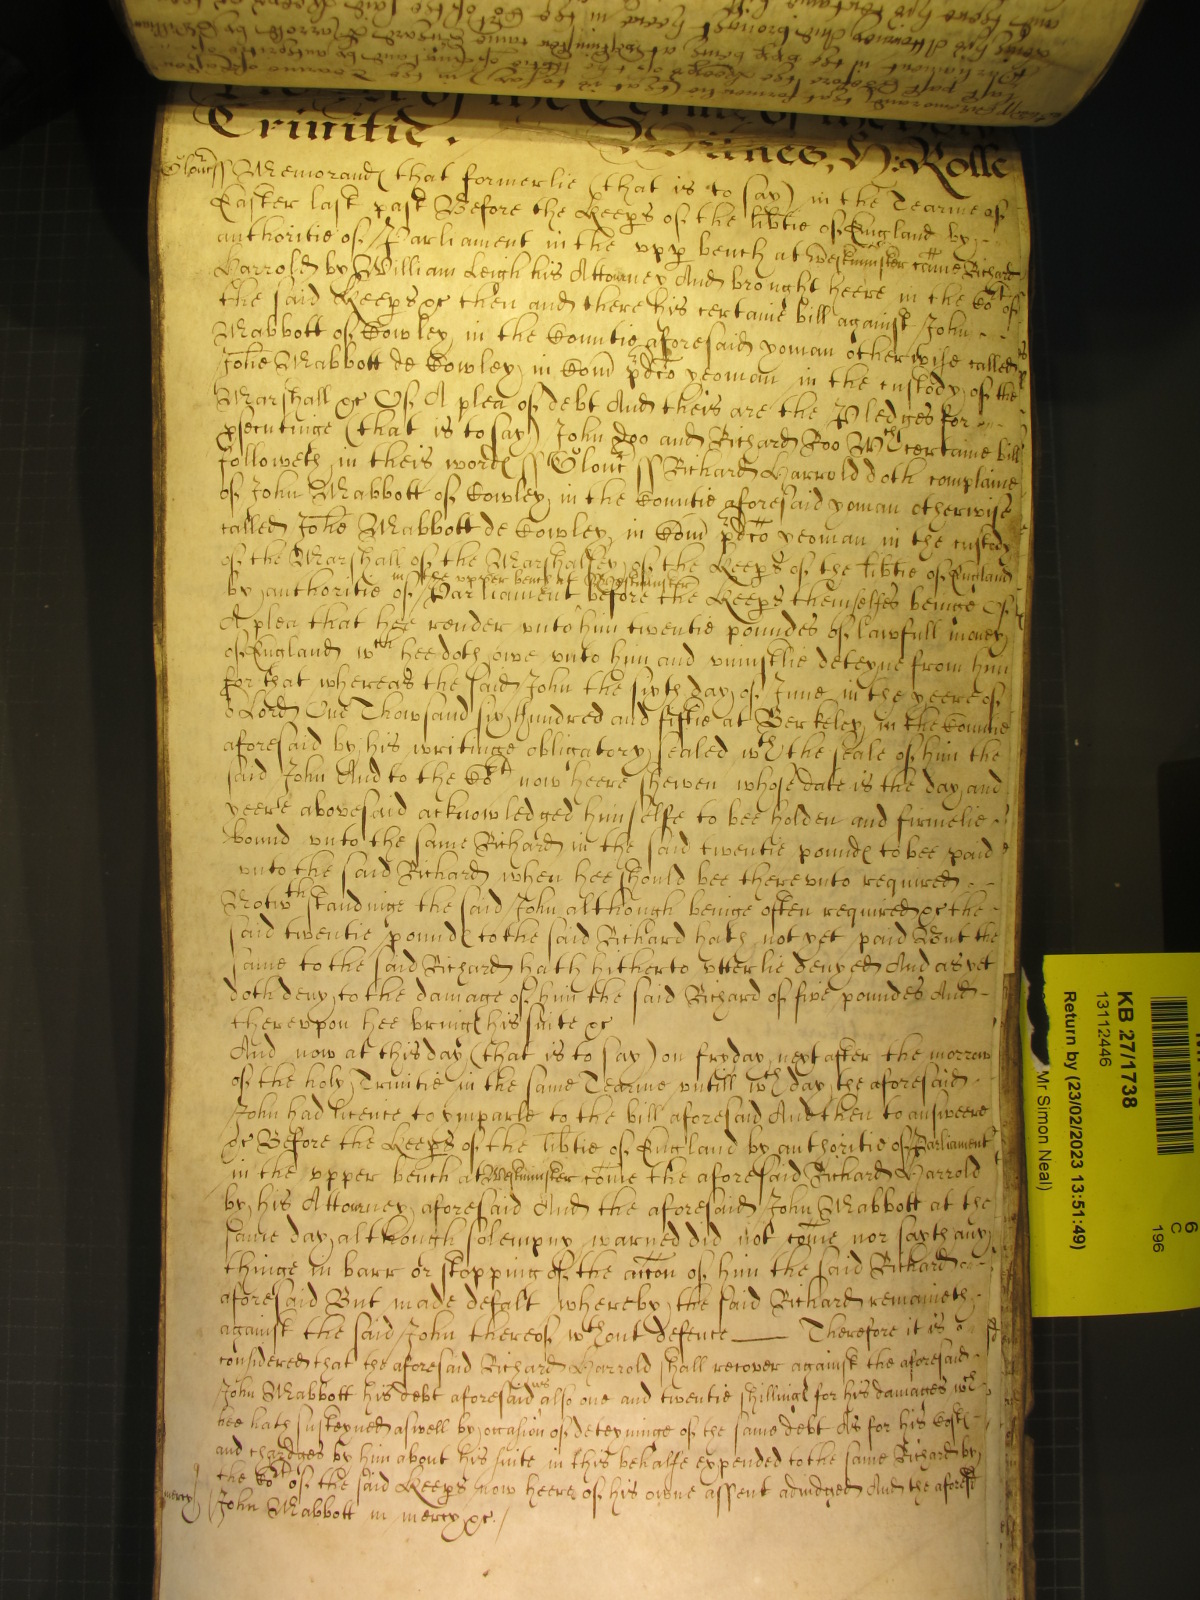 Trinitie. Wittnes, H: Rolle
Glouc ss Memorand that formerlie (that is to say) in the Tearme of
Easter last past Before the Keeps of the libtie of England by
authoritie of Parliament in the upp bench at Westminster came Richard
Harrold by William Leigh his Attorney And brought heere in the Cort of
the said Keeps &c then and there his certaine bill against John
Mabbott of Cowley in the Countie aforesaid yoman otherwise called
Johe Mabbott de Cowley in Com pdco yeoman in the custody of the
Marshall &c Of A plea of debt And theis are the Pledges for
psecutinge (that is to say) John Doo and Richard Roo Wch certaine bill
followeth in theis words ss Glouc ss Richard Harrold doth complaine
of John Mabbott of Cowley in the Countie aforesaid yoman otherwise
called Johe Mabbott de Cowley in Com pdco yeoman in the custody
of the Marshall of the Marshalsey of the Keeps of the libtie of England
in the upper bench at Westminster
by authoritie of Parliament before the Keeps themselfes beinge Of
A plea that hee render unto him twentie poundes of lawfull money
of England wch hee doth owe unto him and uniustlie deteyne from him
for that whereas the said John the sixth day of June in the yeere of
or Lord One Thowsand six hundred and fiftie at Berkeley in the Countie
aforesaid by his writinge obligatory sealed wth the seale of him the
said John And to the Cort now heere shewen whose date is the day and
yeere abovesaid acknowledged himselfe to bee holden and firmelie
bound unto the same Richard in the said twentie pounds to bee paid
unto the said Richard when hee should bee thereunto required
Notwthstandinge the said John although beinge often required &c the
said twentie pounds to the said Richard hath not yet paid But the
same to the said Richard hath hitherto utterlie denyed And as yet
doth deny to the damage of him the said Richard of five poundes And
thereupon hee brings his suite &c
And now at this day (that is to say) on fryday next after the morrow
of the holy Trinitie in the same Tearme untill wch day the aforesaid
John had licence to imparle to the bill aforesaid And then to answeere
&c Before the Keeps of the libtie of England by authoritie of Parliament
in the upper bench at Westminster come the aforesaid Richard Harrold
by his Attorney aforesaid And the aforesaid John Mabbott at the
same day although solempny warned did not come nor sayth any
thinge in barr or stopping of the accon of him the said Richard
aforesaid But made defalt whereby the said Richard remaineth
against the said John thereof wthout defence Therefore it is
considered that the aforesaid Richard Harrold shall recover against the aforesaid
John Mabbott his debt aforesaid also one and twentie shillings for his damages wch
hee hath susteyned aswell by occasion of deteyninge of the same debt As for his Costs
and chardges by him about his suite in this behalfe expended to the same Richard by
the Cort of the said Keeps now heere of his owne assent adiudged And the aforesd
mercy John Mabbott in mercy &c.
KB 27/1738
13112446
Return by (23/02/2023 13:51:49)
Mr Simon Neal)
6
C
196